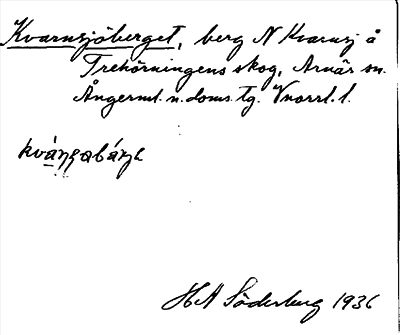 Kvarnsjöberget, berg N Kvarnsj å
Trehörningens skog, Arnäs sn.
Ångerml. n. doms. tg. Vnorrl. l.
HA Söderberg 1936